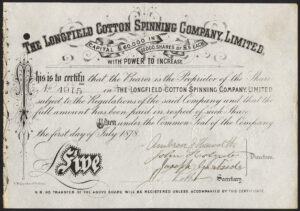 THE LONGFIELD COTTON SPINNING COMPANY, LIMITED.
CAPITAL £60,000 IN SHARES OF £5 EACH
WITH POWER TO INCREASE.
This is to certify that the Bearer is the Proprietor of the Share
No. 4915 in THE LONGFIELD COTTON SPINNING COMPANY, LIMITED
subject to the Regulations of the said Company and that the
full amount has been paid in respect of such Share.
Given under the Common Seal of the Company
the first day of July 1878.
Five
Directors.
Secretary.
N.B. NO TRANSFER OF THE ABOVE SHARE WILL BE REGISTERED UNLESS ACCOMPANIED BY THIS CERTIFICATE.